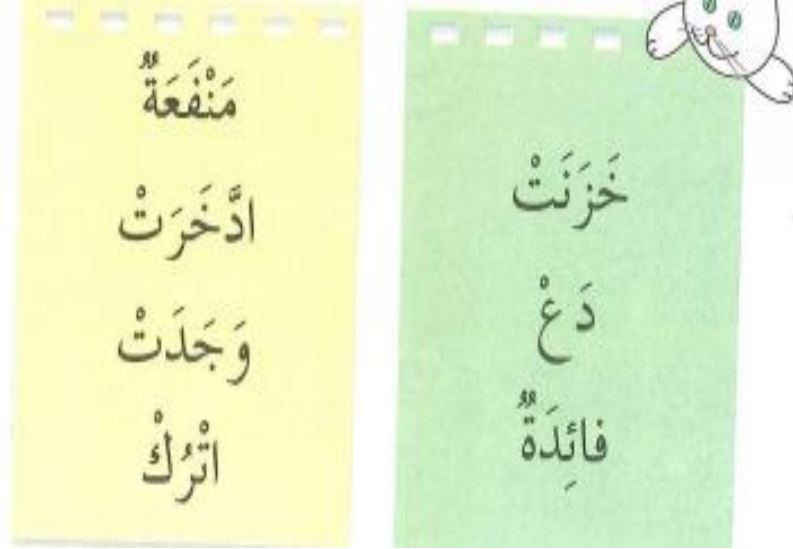 خَزَنَتْ
دَعْ
فائِدَةٌ
مَنْفَعَةٌ
ادَّخَرَتْ
وَجَدَتْ
اتْرُكْ